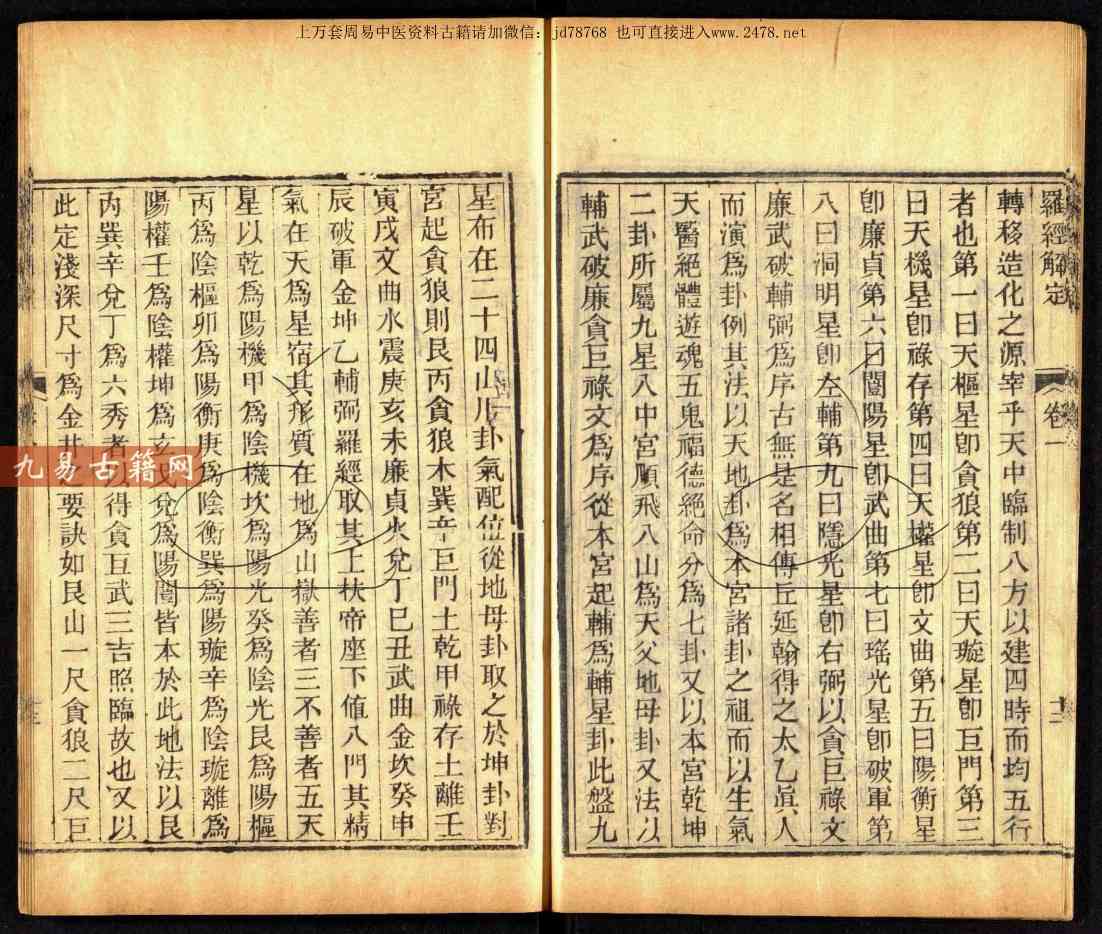 上万套周易中医资料古籍请加微信：jd78768 也可直接进入www.2478.net
羅經解定
卷一
十二
轉移造化之源宰乎天中臨制八方以建四時而均五行
者也第一曰天樞星卽貪狼第二曰天璇星卽巨門第三
曰天機星卽祿存第四曰天權星卽文曲第五曰陽衡星
卽廉貞第六曰闓陽星卽武曲第七曰瑤光星卽破軍第
八曰洞明星卽左輔第九曰隱光星卽右弼以貪巨祿文
廉武破輔弼爲序古無是名相傳丘延翰得之太乙眞人
而演爲卦例其法以天地卦爲本宮諸卦之祖而以生氣
天醫絕體遊魂五鬼福德絕命分爲七卦又以本宮乾坤
二卦所屬九星八中宮順飛八山爲天父地母卦又法以
輔武破廉貪巨祿文爲序從本宮起輔爲輔星卦此盤九
星布在二十四山用卦氣配位從地母卦取之於坤卦對
宮起貪狼則艮丙貪狼木巽辛巨門土乾甲祿存土離壬
寅戌文曲水震庚亥未廉貞火兌丁巳丑武曲金坎癸申
辰破軍金坤乙輔弼羅經取其上扶帝座下値八門其精
氣在天爲星宿其形質在地爲山嶽善者三不善者五天
星以乾爲陽機甲爲陰機坎爲陽光癸爲陰光艮爲陽樞
丙爲陰樞卯爲陽衡庚爲陰衡巽爲陽璇辛爲陰璇離爲
陽權壬爲陰權坤爲玄戈兌爲陽闓皆本於此地法以艮
丙巽辛兌丁爲六秀者以得貪巨武三吉照臨故也又以
此定淺深尺寸爲金井之要訣如艮山一尺貪狼二尺巨
九易古籍网